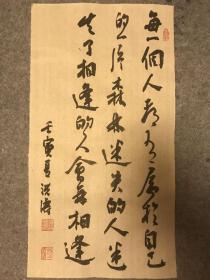 每一個人都有屬於自己
的一片森林迷失的人迷
失了相逢的人會再相逢
壬寅夏洪濤